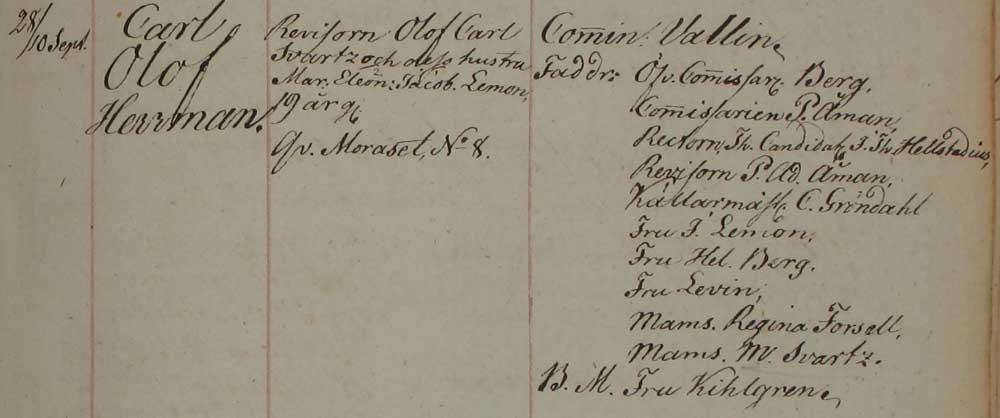 28/10 Sept.
Carl
Olof
Herrman.
Revisorn Olof Carl
Svartz och dess hustru
Mar. Eleon: Jacob. Lemon,
19 år g.
Qv. Moraset, No 8.
Com̄in: Vallin,
Faddr: Öfv. Com̄issar. Berg,
Com̄issarien P. Åman,
Rectorn, Th. Candidat, J. Th. Hellstadius,
Revisorn P. Ad. Åman,
Källarmäst. C. Gröndahl
Fru J. Lemon,
Fru Hel. Berg.
Fru Levin,
Mams. Regina Forsell,
Mams. M. Svartz.
B. M. Fru Kihlgren,